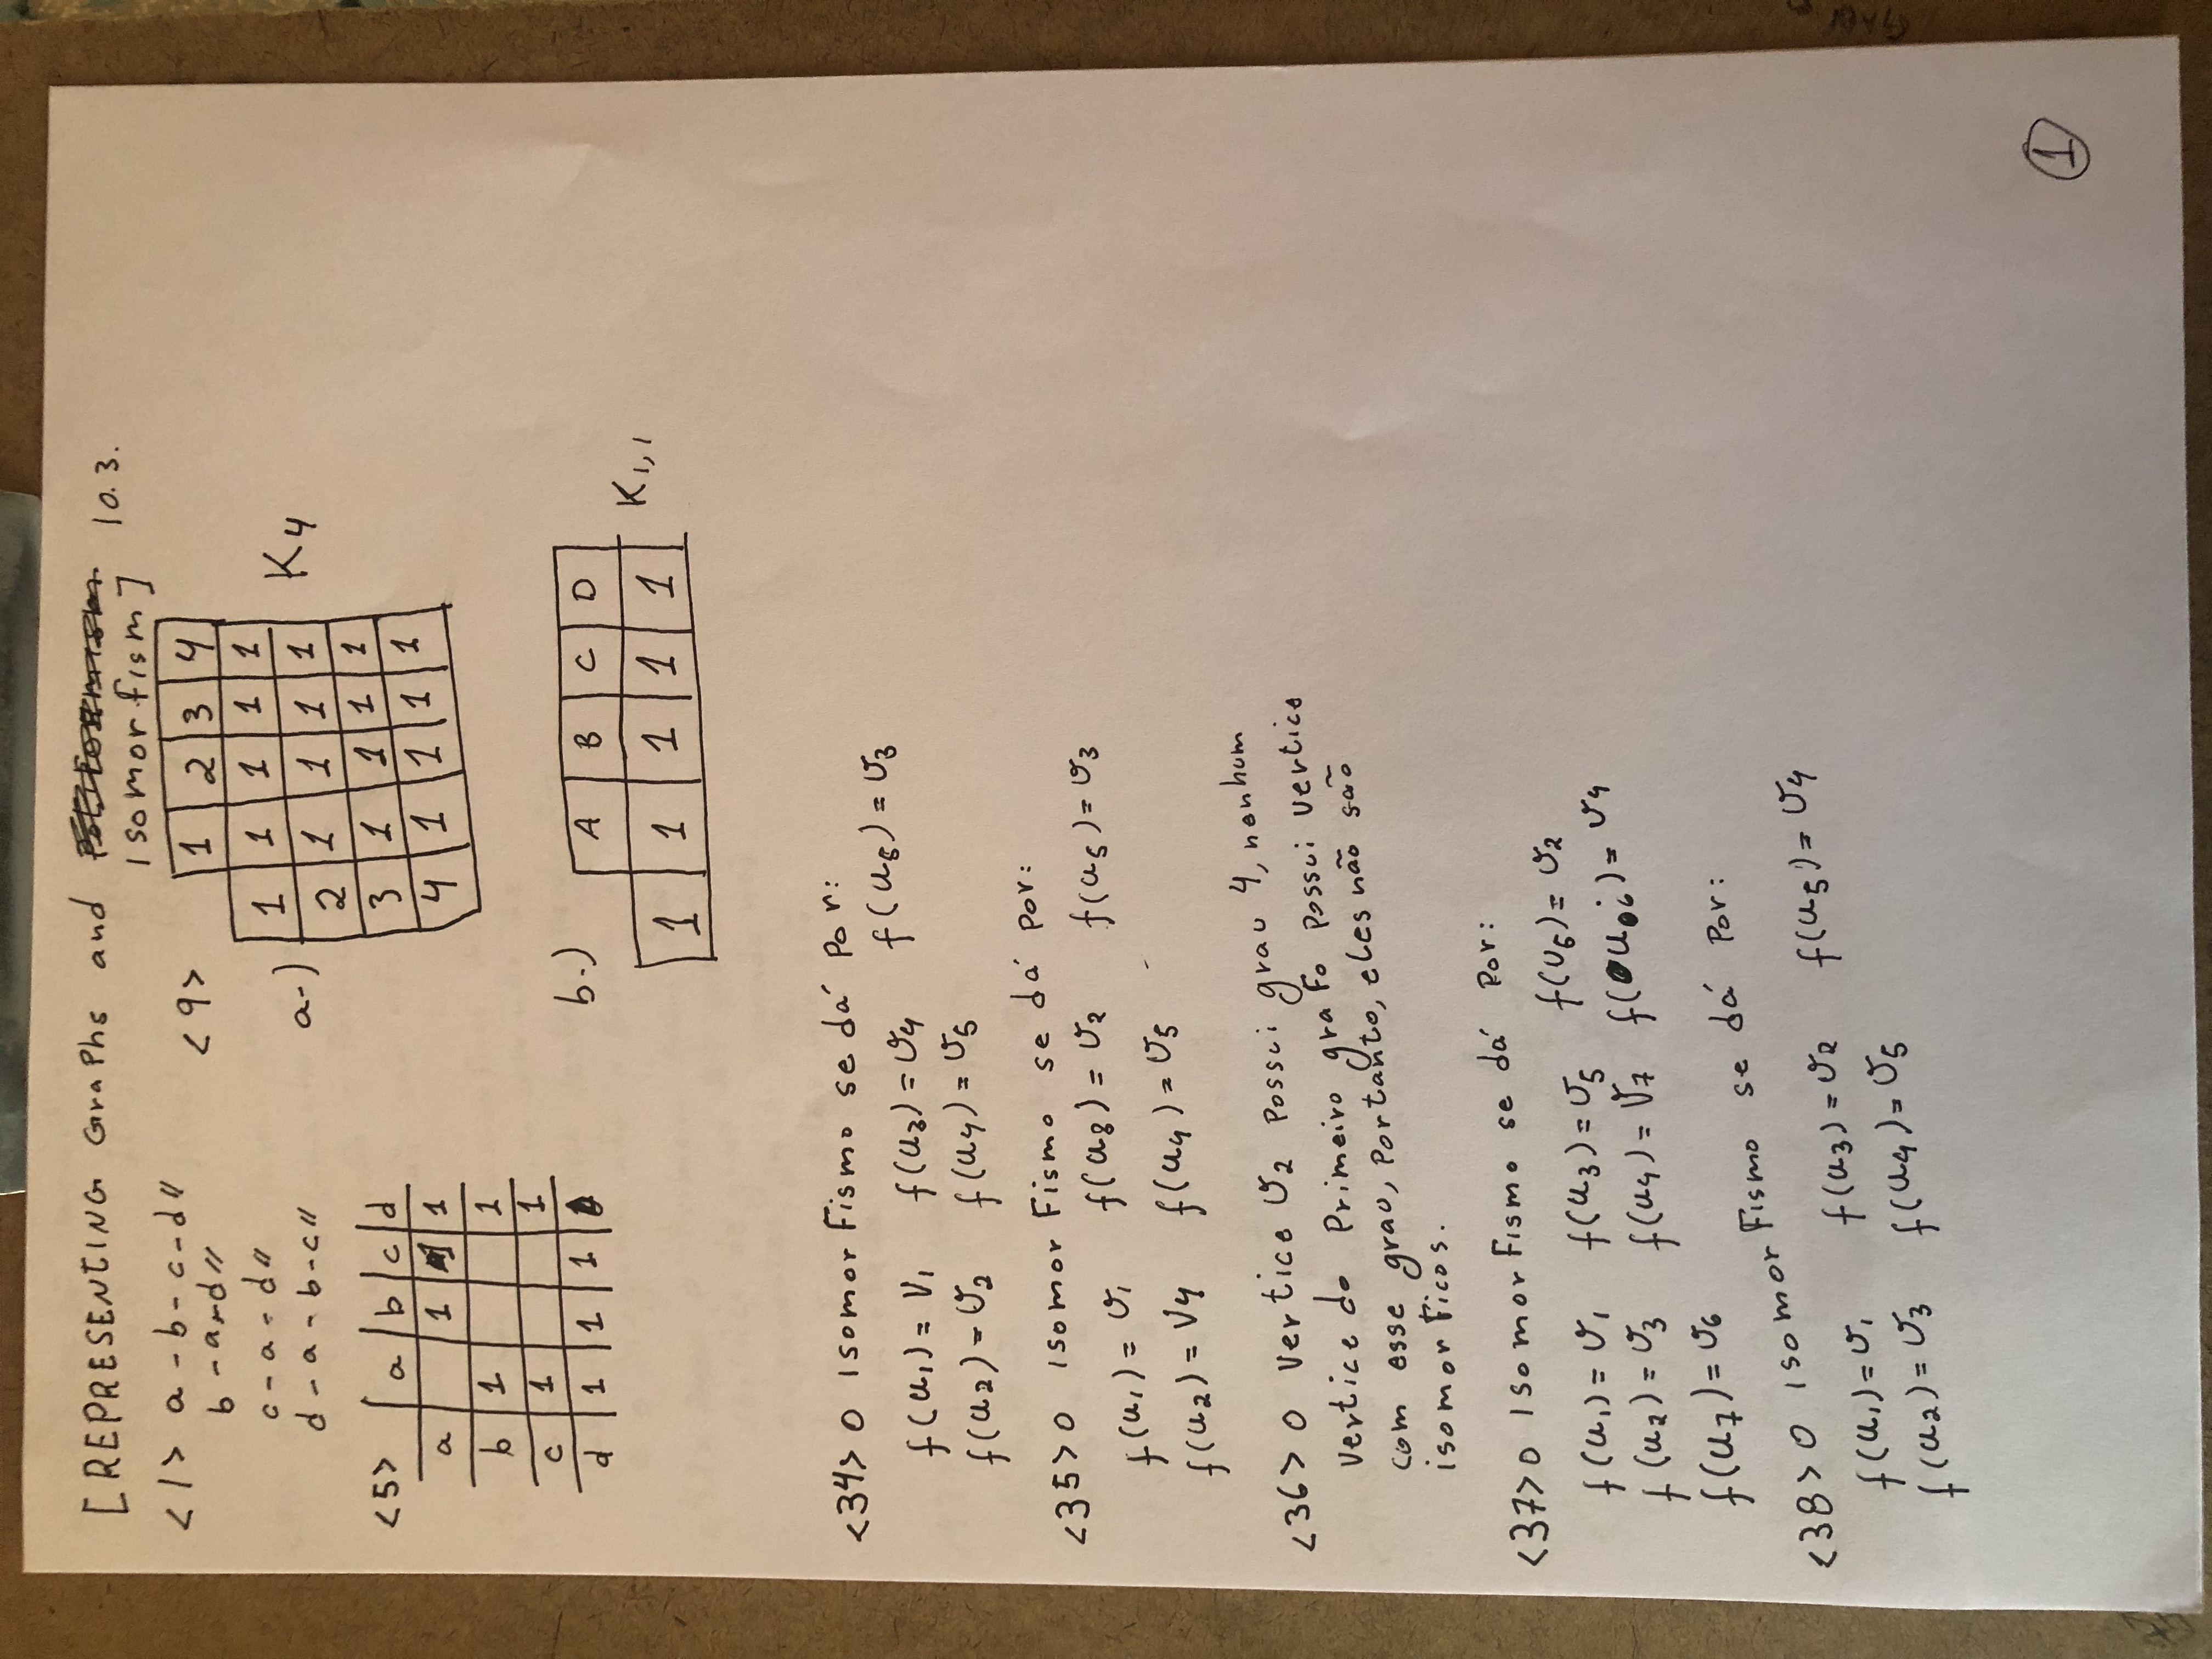 [REPRESENTING Graphs and
Isomorfism] 10.3.
<1> a - b - c - d //
b - a - d //
c - a - d //
d - a - b - c //
<5>
a b c d
a 1 1 1
b 1 1
c 1 1
d 1 1 1
<9>
a-)
1 2 3 4
1 1 1 1 1
2 1 1 1 1
3 1 1 1 1
4 1 1 1 1
K4
b-)
A B C D
1 1 1 1 1
K1,1
<34> O Isomorfismo se dá por:
f(u1) = v1 f(u3) = v4 f(u5) = v3
f(u2) = v2 f(u4) = v5
<35> O Isomorfismo se dá por:
f(u1) = v1 f(u3) = v2 f(u5) = v3
f(u2) = v4 f(u4) = v5
<36> O vertice v2 possui grau 4, nenhum
vertice do primeiro grafo possui vertice
com esse grau, portanto, eles não são
isomorficos.
<37> O Isomorfismo se dá por:
f(u1) = v1 f(u3) = v5 f(u5) = v2
f(u2) = v3 f(u4) = v7 f(u6) = v4
f(u7) = v6
<38> O Isomorfismo se dá por:
f(u1) = v1 f(u3) = v2 f(u5) = v4
f(u2) = v3 f(u4) = v5
1